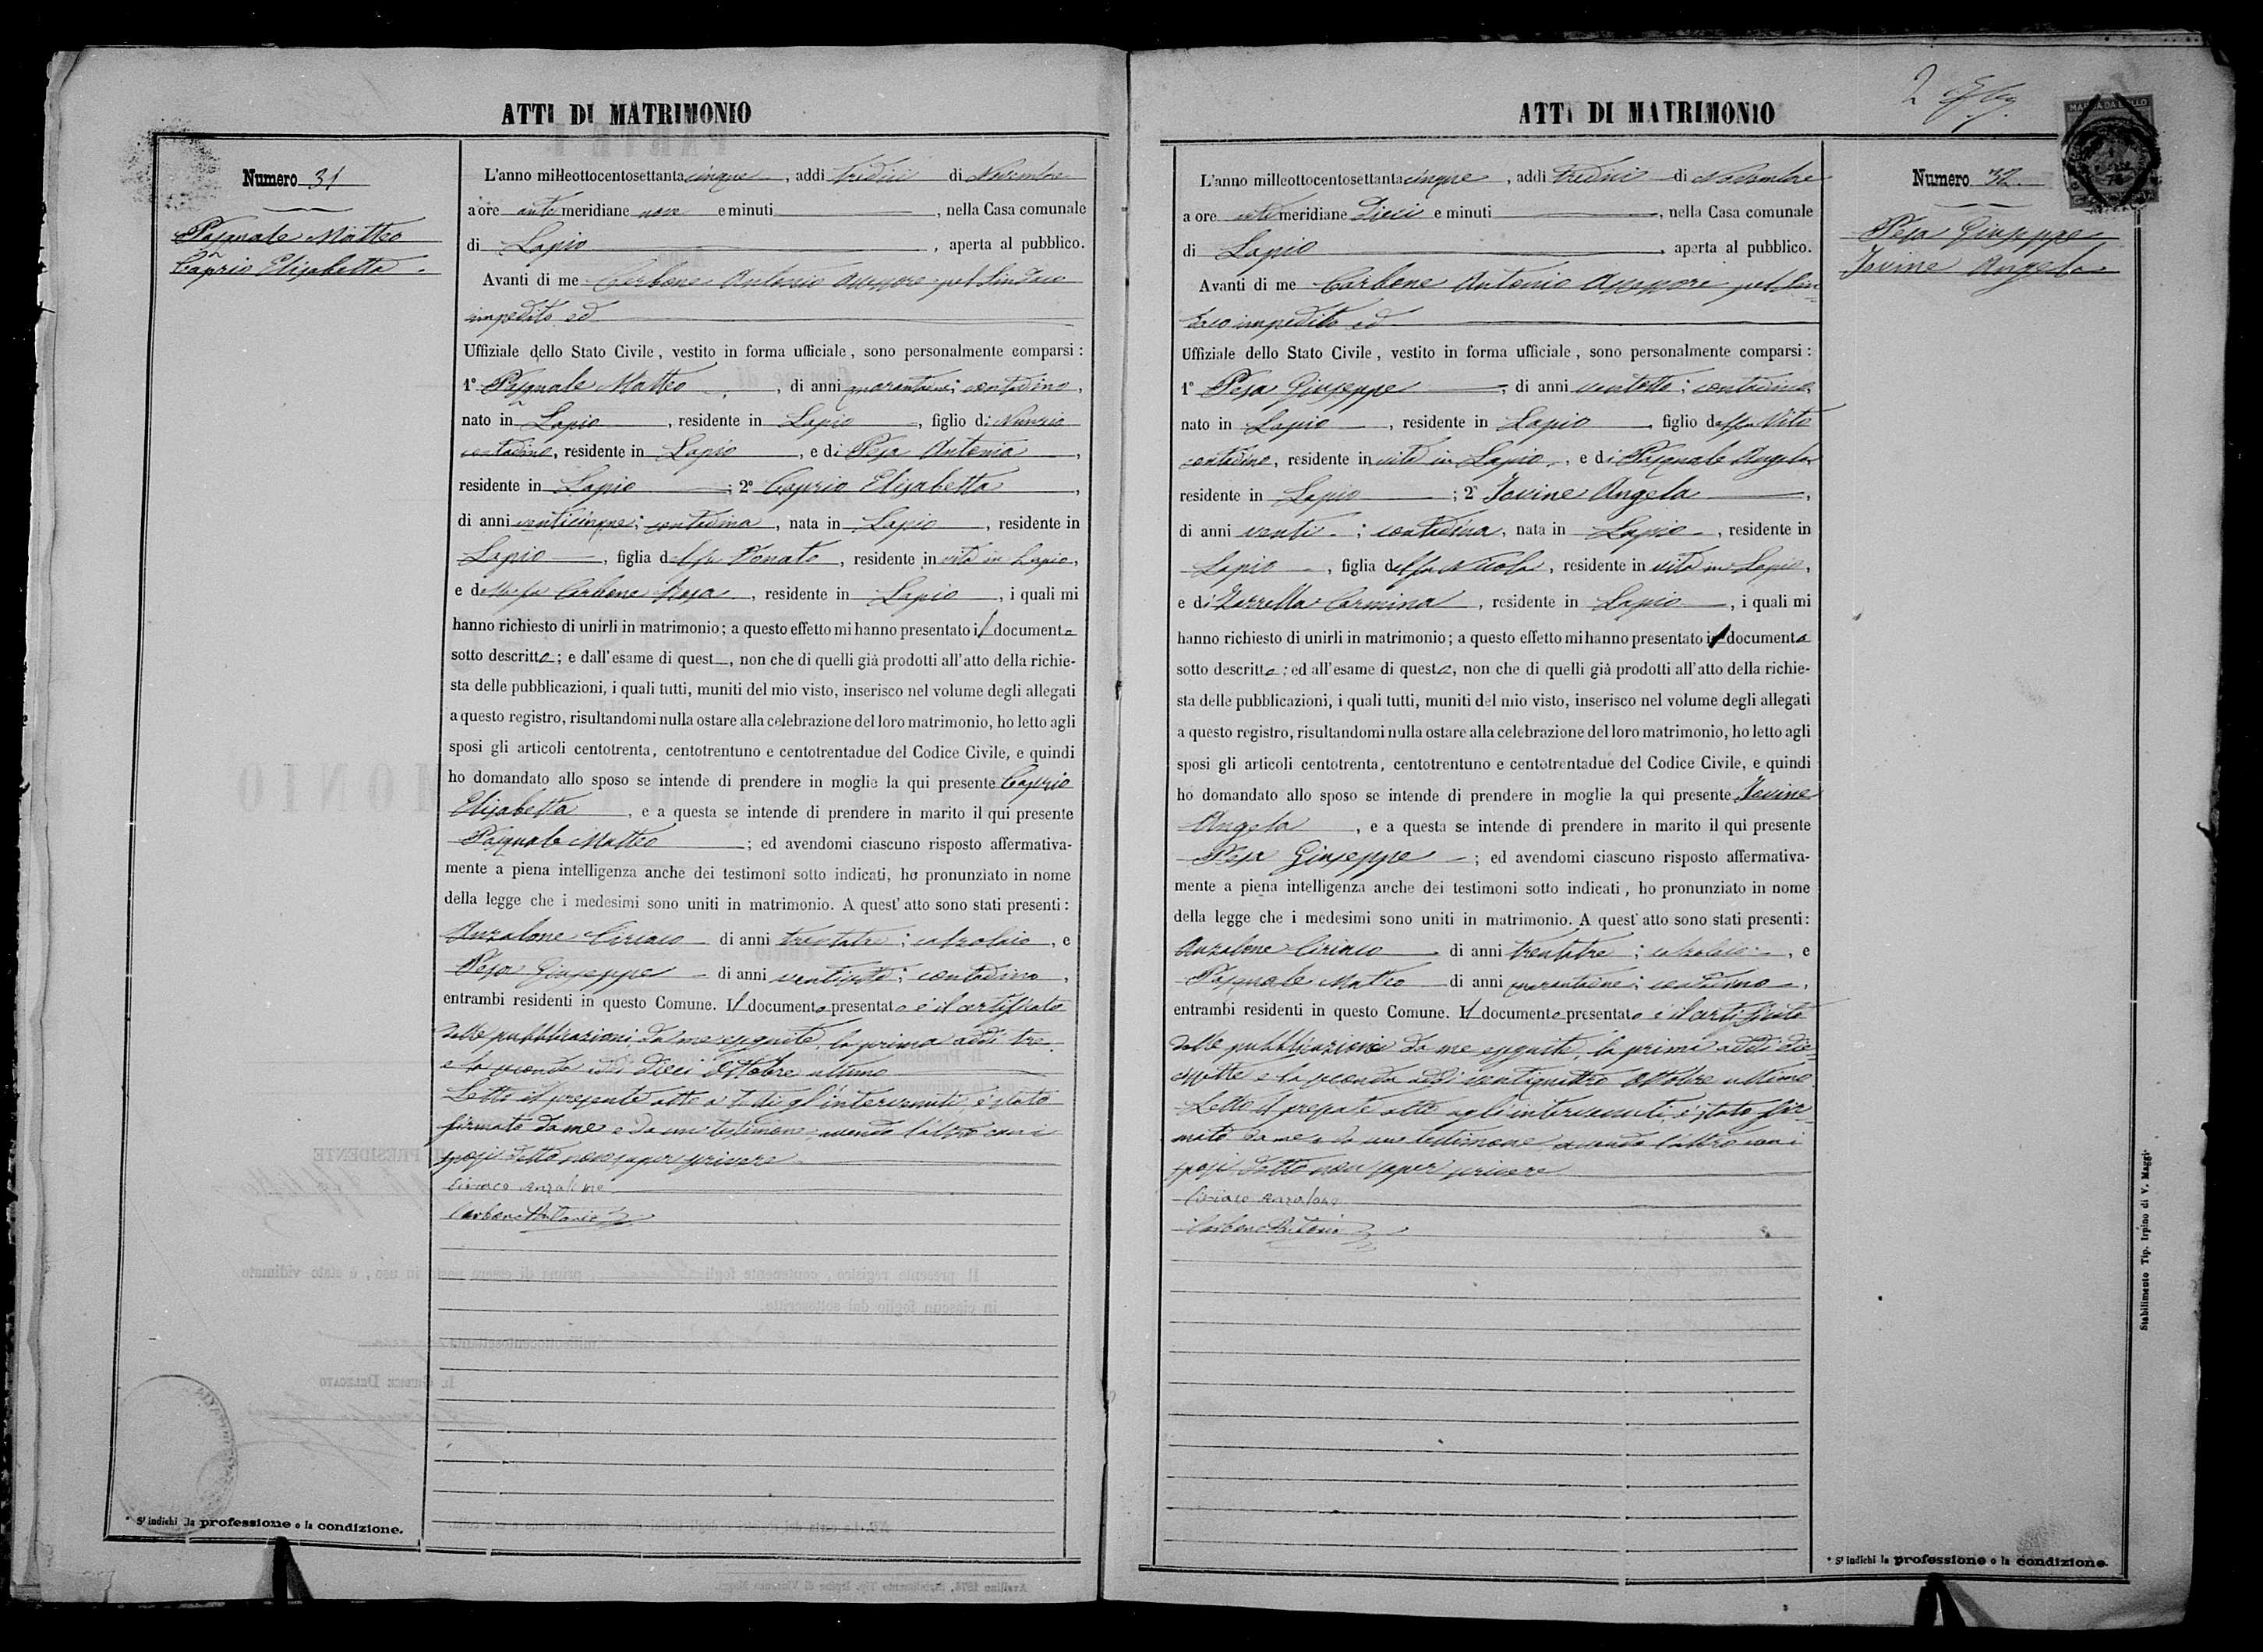 ATTI DI MATRIMONIO
Numero 31
Pasquale Matteo
Caprio Elisabetta
L'anno milleottocentosettantacinque, addì tredici di Novembre
a ore antimeridiane nove e minuti , nella Casa comunale
di Lapio , aperta al pubblico.
Avanti di me Carbone Antonio Assessore pel Sindaco
impedito ed
Uffiziale dello Stato Civile, vestito in forma ufficiale, sono personalmente comparsi:
1° Pasquale Matteo , di anni quarantuno; contadino,
nato in Lapio , residente in Lapio , figlio di Nunzio
contadino, residente in Lapio , e di Pesa Antonia ,
residente in Lapio ; 2° Caprio Elisabetta ,
di anni venticinque; contadina, nata in Lapio , residente in
Lapio , figlia del fu Donato, residente in vita in Lapio,
e della fu Carbone Rosa , residente in Lapio , i quali mi
hanno richiesto di unirli in matrimonio; a questo effetto mi hanno presentato il documento
sotto descritto; e dall'esame di quest , non che di quelli già prodotti all'atto della richie-
sta delle pubblicazioni, i quali tutti, muniti del mio visto, inserisco nel volume degli allegati
a questo registro, risultandomi nulla ostare alla celebrazione del loro matrimonio, ho letto agli
sposi gli articoli centotrenta, centotrentuno e centotrentadue del Codice Civile, e quindi
ho domandato allo sposo se intende di prendere in moglie la qui presente Caprio
Elisabetta , e a questa se intende di prendere in marito il qui presente
Pasquale Matteo ; ed avendomi ciascuno risposto affermativa-
mente a piena intelligenza anche dei testimoni sotto indicati, ho pronunziato in nome
della legge che i medesimi sono uniti in matrimonio. A quest'atto sono stati presenti:
Anzalone Ciriaco di anni trentatre; calzolaio, e
Pesa Giuseppe di anni ventisette; contadino,
entrambi residenti in questo Comune. Il documento presentato è il certificato
delle pubblicazioni da me eseguite, la prima addì tre
e la seconda addì dieci Ottobre ultimo
Letto il presente atto a tutti gl'intervenuti, è stato
firmato da me e da un testimone avendo l'altro con i
sposi detto non saper scrivere
Ciriaco Anzalone
Carbone Antonio
* S'indichi la professione o la condizione.
ATTI DI MATRIMONIO
MARCA DA BOLLO
Numero 32
Pesa Giuseppe
Iovine Angela
L'anno milleottocentosettantacinque, addì tredici di Novembre
a ore antimeridiane Dieci e minuti , nella Casa comunale
di Lapio , aperta al pubblico.
Avanti di me Carbone Antonio Assessore pel Sin-
daco impedito ed
Uffiziale dello Stato Civile, vestito in forma ufficiale, sono personalmente comparsi:
1° Pesa Giuseppe , di anni ventotto; contadino,
nato in Lapio , residente in Lapio , figlio del fu Vito
contadino, residente in vita in Lapio, e di Pasquale Angela
residente in Lapio ; 2° Iovine Angela ,
di anni venti ; contadina, nata in Lapio , residente in
Lapio , figlia del fu Nicola, residente in vita in Lapio,
e di Zarrella Carmina , residente in Lapio , i quali mi
hanno richiesto di unirli in matrimonio; a questo effetto mi hanno presentato il documento
sotto descritto; ed all'esame di questo, non che di quelli già prodotti all'atto della richie-
sta delle pubblicazioni, i quali tutti, muniti del mio visto, inserisco nel volume degli allegati
a questo registro, risultandomi nulla ostare alla celebrazione del loro matrimonio, ho letto agli
sposi gli articoli centotrenta, centotrentuno e centotrentadue del Codice Civile, e quindi
ho domandato allo sposo se intende di prendere in moglie la qui presente Iovine
Angela , e a questa se intende di prendere in marito il qui presente
Pesa Giuseppe ; ed avendomi ciascuno risposto affermativa-
mente a piena intelligenza anche dei testimoni sotto indicati, ho pronunziato in nome
della legge che i medesimi sono uniti in matrimonio. A quest'atto sono stati presenti:
Anzalone Ciriaco di anni trentatre; calzolaio, e
Pasquale Matteo di anni quarantuno; contadino,
entrambi residenti in questo Comune. Il documento presentato è il certificato
delle pubblicazioni da me eseguite, la prima addì die-
cisette e la seconda addì ventiquattro Ottobre ultimo
Letto il presente atto agl'intervenuti, è stato fir-
mato da me e da un testimone avendo l'altro con i
sposi detto non saper scrivere
Ciriaco Anzalone
Carbone Antonio
* S'indichi la professione o la condizione.
Stabilimento Tip. Irpino di V. Maggi